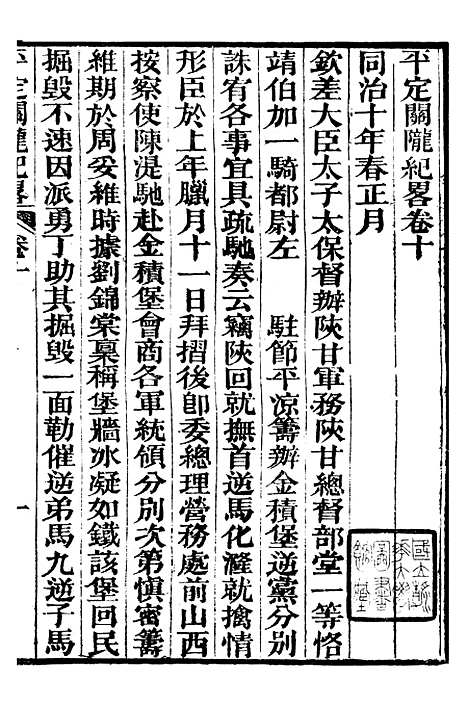 平定關隴紀畧卷十
同治十年春正月
欽差大臣太子太保督辦陝甘軍務陝甘總督部堂一等恪
靖伯加一騎都尉左　　駐節平涼籌辦金積堡逆黨分別
誅宥各事宜具疏馳奏云竊陝回就撫首逆馬化漋就擒情
形臣於上年臘月十一日拜摺後卽委總理營務處前山西
按察使陳湜馳赴金積堡會商各軍統領分別次第愼密籌
維期於周妥維時據劉錦棠稟稱堡牆冰凝如鐵該堡回民
掘毀不速因派勇丁助其掘毀一面勒催逆弟馬九逆子馬
平定關隴紀畧
卷十
一